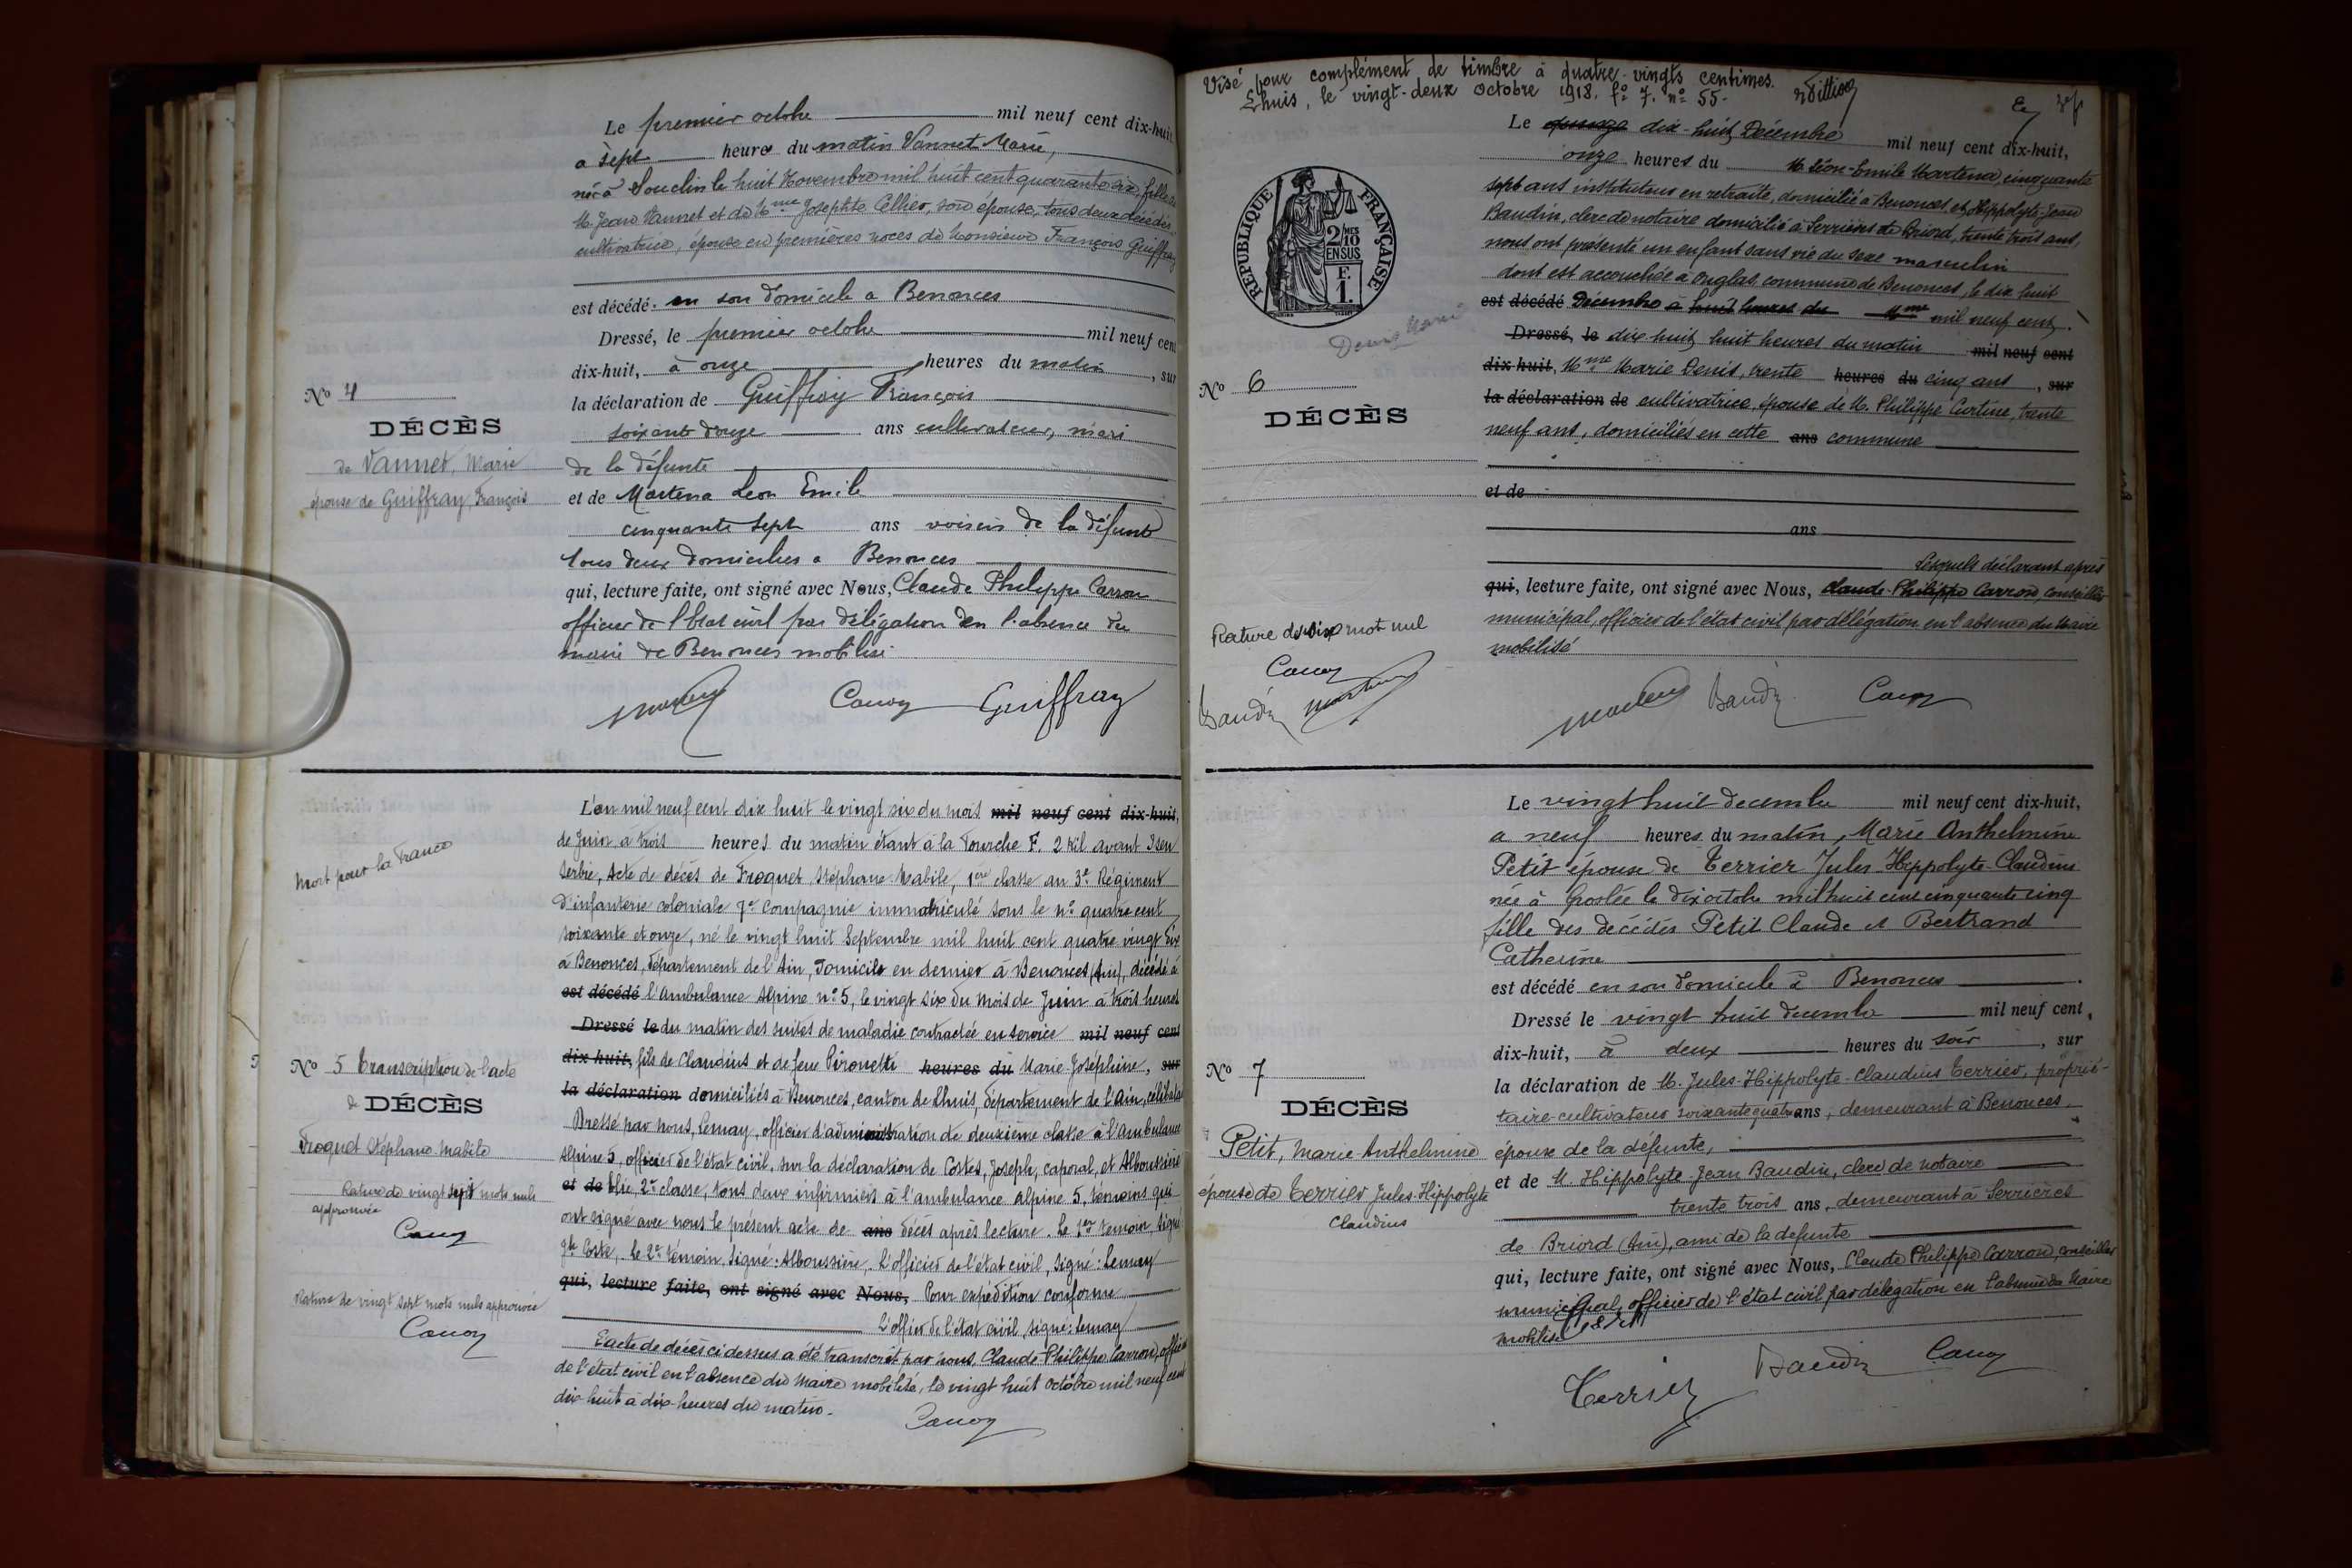 Le premier octobre mil neuf cent dix-huit
a sept heures du matin Vannet Marie,
née à Souclin le huit Novembre mil huit cent quarante six, fille de
M. Jean Vannet et de Mme Josephte Cellier, son épouse, tous deux décédés,
cultivatrice, épouse en premières noces de Monsieur François Guiffray
est décédé. en son domicile a Benonces
Dressé, le premier octobre mil neuf cent
dix-huit, à onze heures du matin, sur
la déclaration de Guiffray François
soixante douze ans cultivateur, mari
de la défunte
et de Martena Leon Emile
cinquante sept ans voisin de la défunte
tous deux domiciliés a Benonces
qui, lecture faite, ont signé avec Nous, Claude Philippe Carron
officier de l'état civil par délégation en l'absence du
maire de Benonces mobilisé
Carron Guiffray
No 4
DÉCÈS
de Vannet, Marie
épouse de Guiffray, François
L'an mil neuf cent dix huit le vingt six du mois mil neuf cent dix-huit,
de Juin a trois heures du matin étant à la Fourche F. 2 kil avant Isen
Serbie, Acte de décès de Froquet Stéphane Mabile, 1ère classe au 3e Régiment
d'infanterie coloniale 7e Compagnie immatriculé sous le no quatre cent
soixante et onze, né le vingt huit Septembre mil huit cent quatre vingt dix
à Benonces, département de l'Ain, Domicile en dernier à Benonces (Ain), décédé à
est décédé l'ambulance Alpine no 5, le vingt six du mois de Juin à trois heures
Dressé le du matin des suites de maladie contractée en service mil neuf cent
dix huit, fils de Claudius et de feue Pironetti heures du Marie Joséphine, sur
la déclaration domiciliés à Benonces, canton de Lhuis, département de l'Ain, célibataire
Dressé par nous, Lemay, officier d'administration de deuxième classe à l'ambulance
Alpine 5, officier de l'état civil, sur la déclaration de Costes, Joseph, caporal, et Alboussière
et de Elie, 2e classe, tous deux infirmiers à l'ambulance Alpine 5, témoins qui
ont signé avec nous le présent acte de ans décès après lecture. Le 1er témoin, signé
Jh Coste, le 2e témoin, signé: Alboussière, L'officier de l'état civil, signé: Lemay
qui, lecture faite, ont signé avec Nous, Pour expédition conforme
L'officier de l'état civil, signé: Lemay
L'acte de décès ci dessus a été transcrit par nous, Claude Philippe Carron, officier
de l'état civil en l'absence du Maire mobilisé, le vingt huit octobre mil neuf cent
dix huit à dix heures du matin.
Carron
Mort pour la France
No 5 Transcription de l'acte
de DÉCÈS
Froquet Stéphane Mabile
Rature de vingt sept mots nuls
approuvée
Carron
Rature de vingt sept mots nuls approuvée
Carron
Visé pour complément de timbre à quatre-vingts centimes.
Lhuis, le vingt-deux octobre 1918. fo 7. no 55.
RÉPUBLIQUE FRANÇAISE
2/10 EN SUS
F. 1.
Denis Marie
Le quinze dix-huit Décembre mil neuf cent dix-huit,
onze heures du M. Léon-Emile Martena, cinquante
sept ans instituteur en retraite, domicilié à Benonces et Hippolyte-Jean
Baudin, clerc de notaire domicilié à Serrières de Briord, trente trois ans,
nous ont présenté un enfant sans vie du sexe masculin
dont est accouchée à Onglas, commune de Benonces, le dix huit
est décédé Décembre à huit heures du Mme mil neuf cent
Dressé, le dix huit, huit heures du matin mil neuf cent
dix-huit, Mme Marie Denis, trente heures du cinq ans, sur
la déclaration de cultivatrice, épouse de M. Philippe Curtine, trente
neuf ans, domiciliés en cette ans commune
et de
ans
Lesquels déclarant après
qui, lecture faite, ont signé avec Nous, Claude-Philippe Carron, conseiller
municipal, officier de l'état civil par délégation en l'absence du Maire
mobilisé
Baudin Carron
No 6
DÉCÈS
Rature de dix mot nul
Carron
Baudin
Le vingt huit decembre mil neuf cent dix-huit,
a neuf heures du matin, Marie Anthelmine
Petit épouse de Terrier Jules Hippolyte Claudius
née à Groslée le dix octobre mil huit cent cinquante cinq
fille des décédés Petit Claude et Bertrand
Catherine
est décédé en son domicile à Benonces.
Dressé le vingt huit decembre mil neuf cent
dix-huit, à deux heures du soir, sur
la déclaration de M. Jules-Hippolyte-Claudius Terrier, proprié-
taire-cultivateur soixante quatre ans, demeurant à Benonces,
époux de la défunte,
et de M. Hippolyte-Jean Baudin, clerc de notaire
trente trois ans, demeurant à Serrières
de Briord (Ain), ami de la défunte
qui, lecture faite, ont signé avec Nous, Claude Philippe Carron, conseiller
municipal, officier de l'état civil par délégation en l'absence du Maire
mobilisé
Terrier Baudin Carron
No 7
DÉCÈS
Petit, Marie Anthelmine
épouse de Terrier Jules-Hippolyte
Claudius